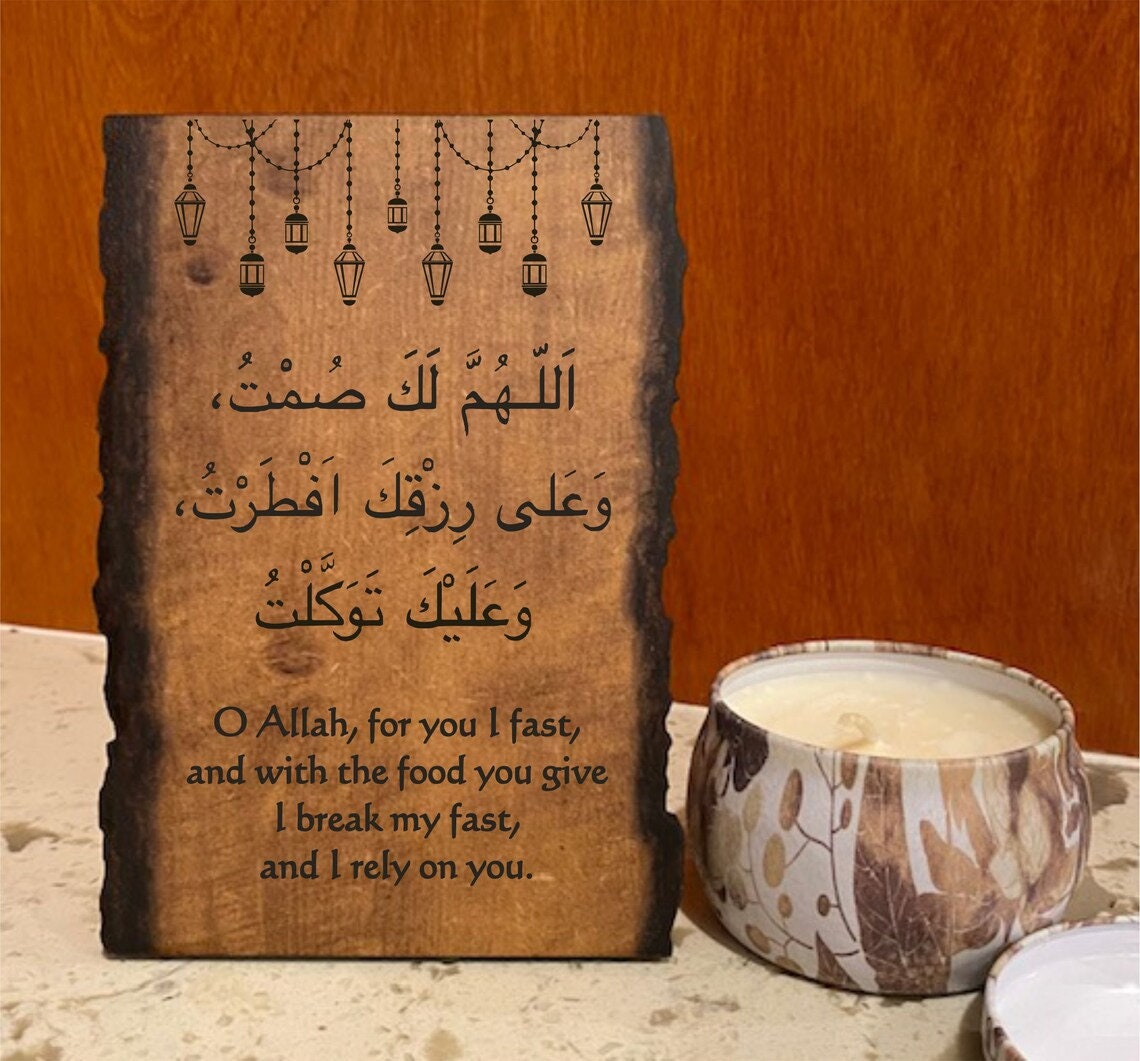 اَللّـهُمَّ لَكَ صُمْتُ،
وَعَلى رِزْقِكَ اَفْطَرْتُ،
وَعَلَيْكَ تَوَكَّلْتُ
O Allah, for you I fast,
and with the food you give
I break my fast,
and I rely on you.